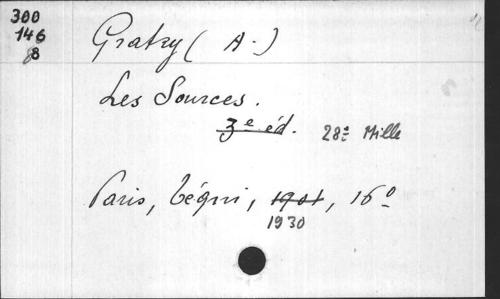 300
146
8
Gratry ( A.)
Les Sources.
3e éd. 28e Mille
Paris, Téqui, 1901, 16º
1930